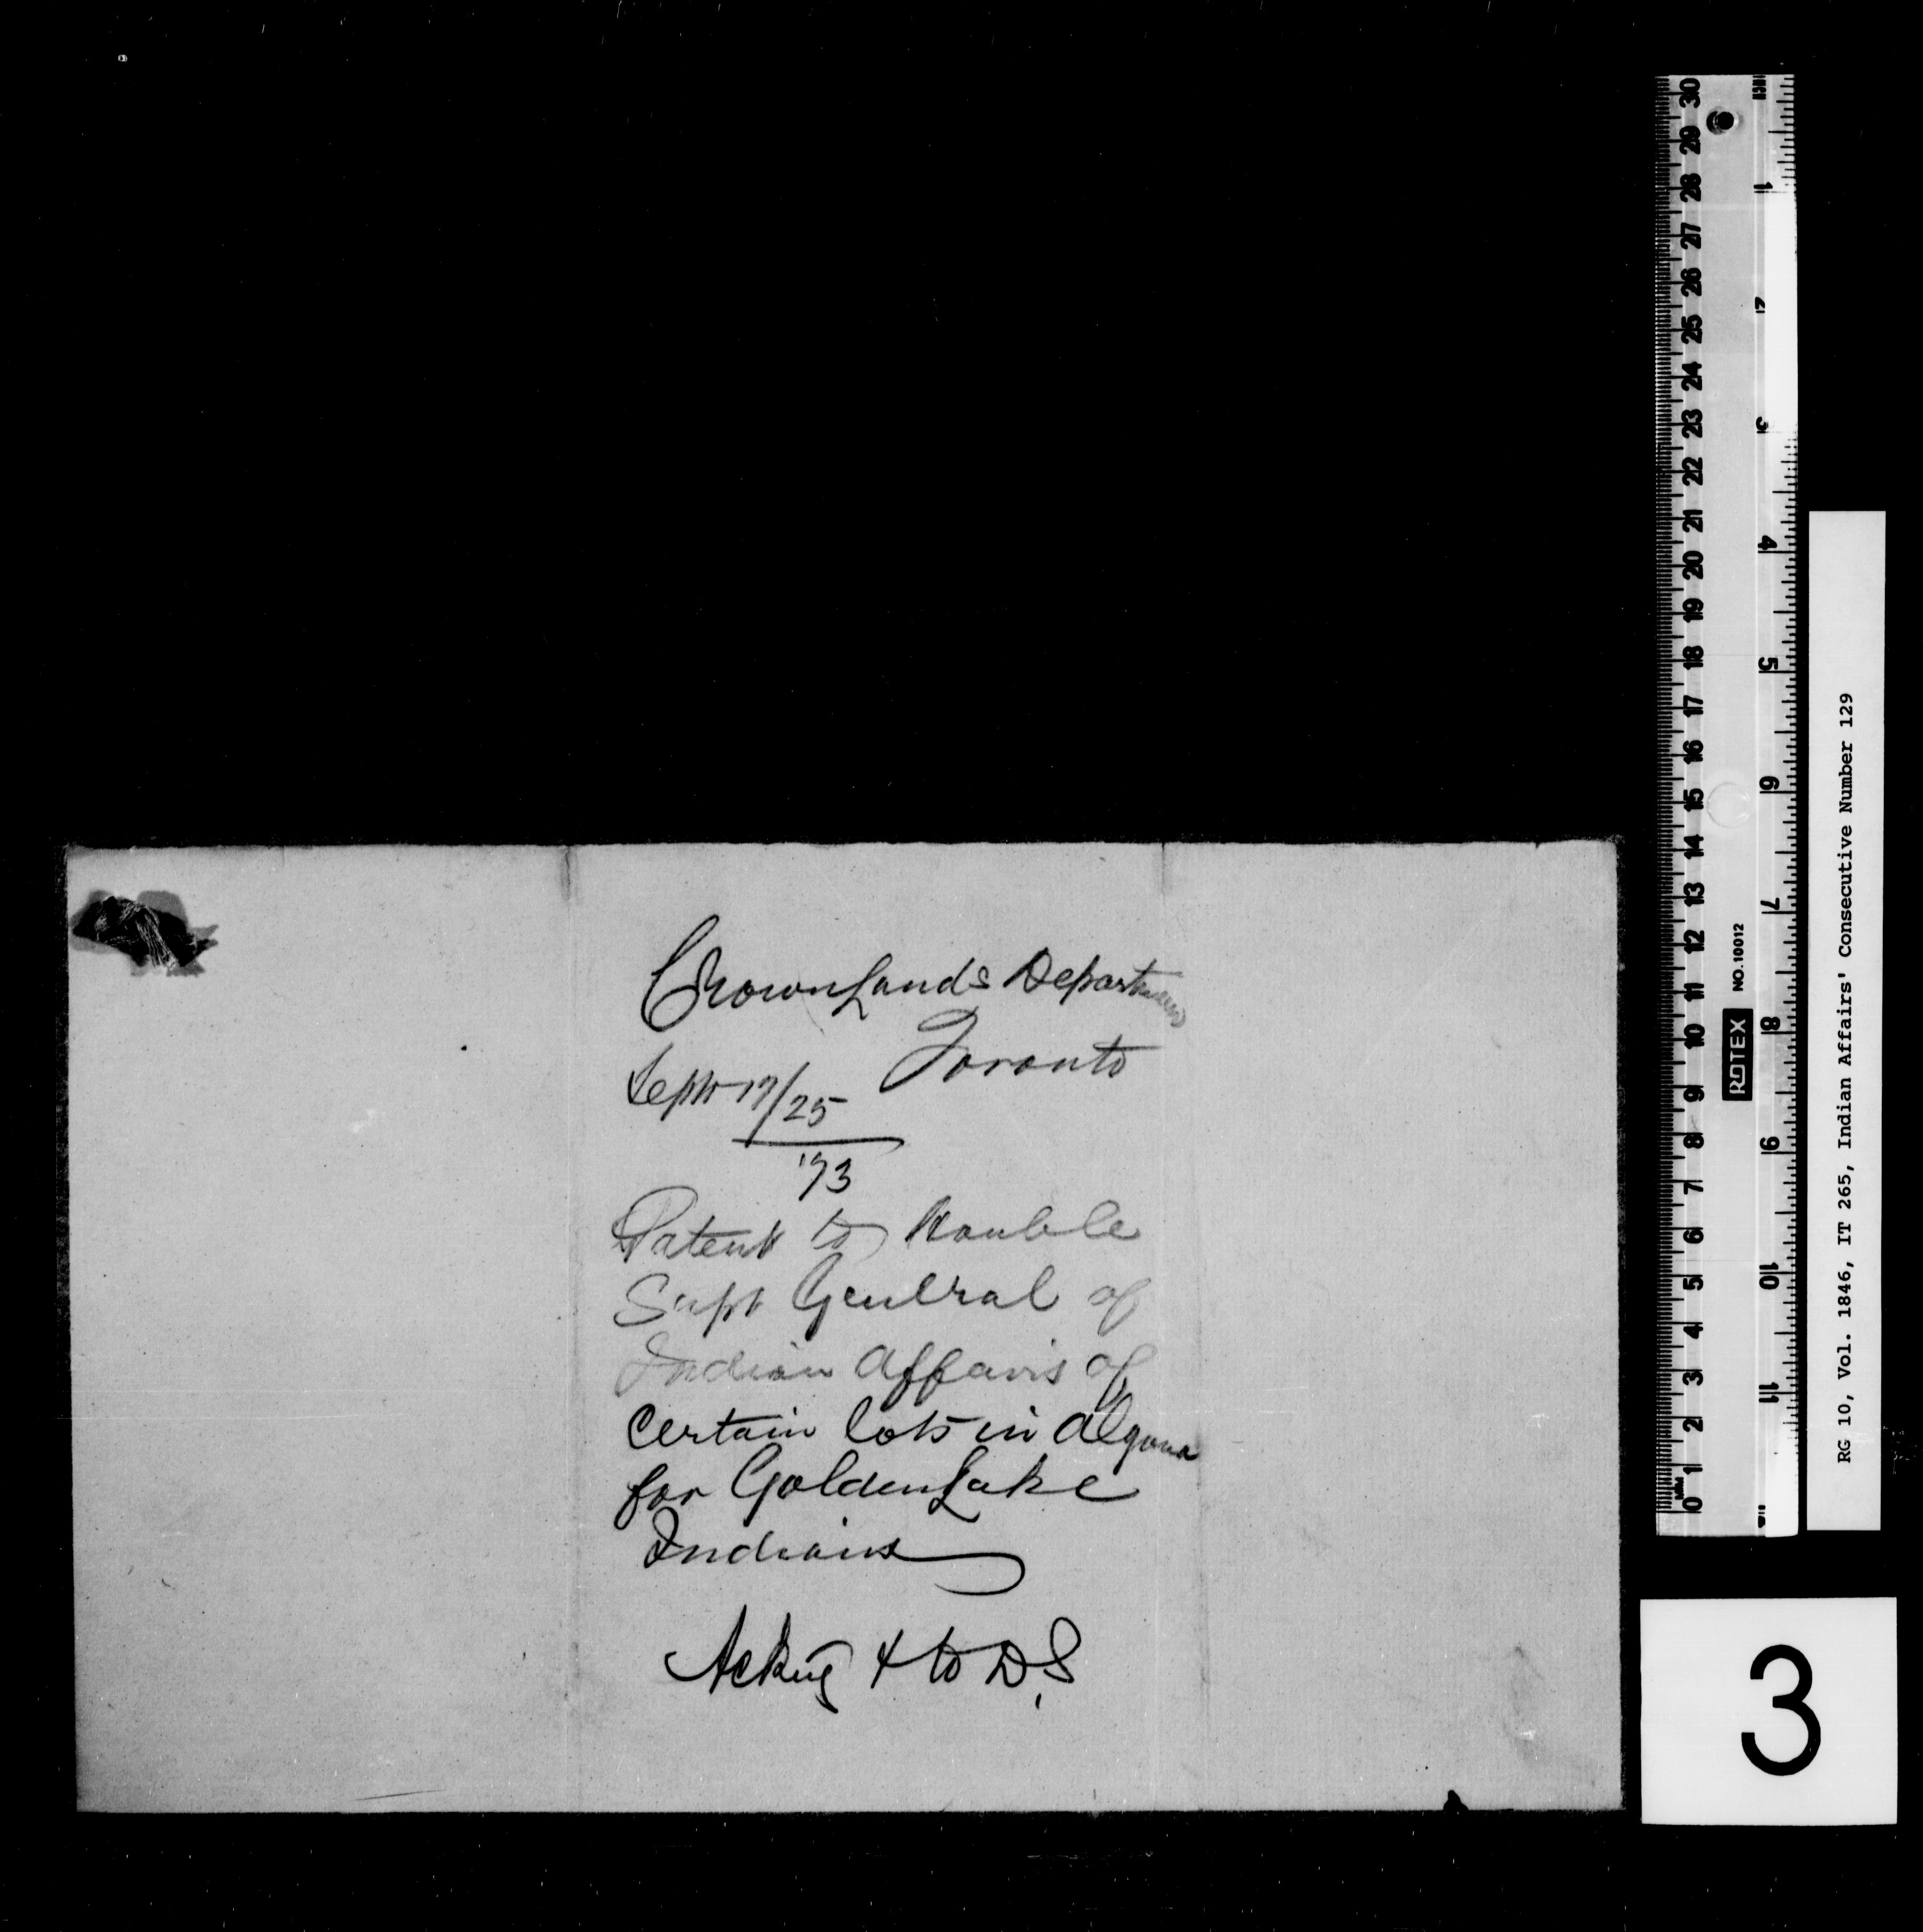 Crown Lands Department
Toronto
Sept 17/25
'73
Patent to Honble
Supt General of
Indian Affairs of
certain lots in Algona
for Golden Lake
Indians
& to D.S.
RG 10, Vol. 1846, IT 265, Indian Affairs' Consecutive Number 129
ROTEX NO. 10012
3